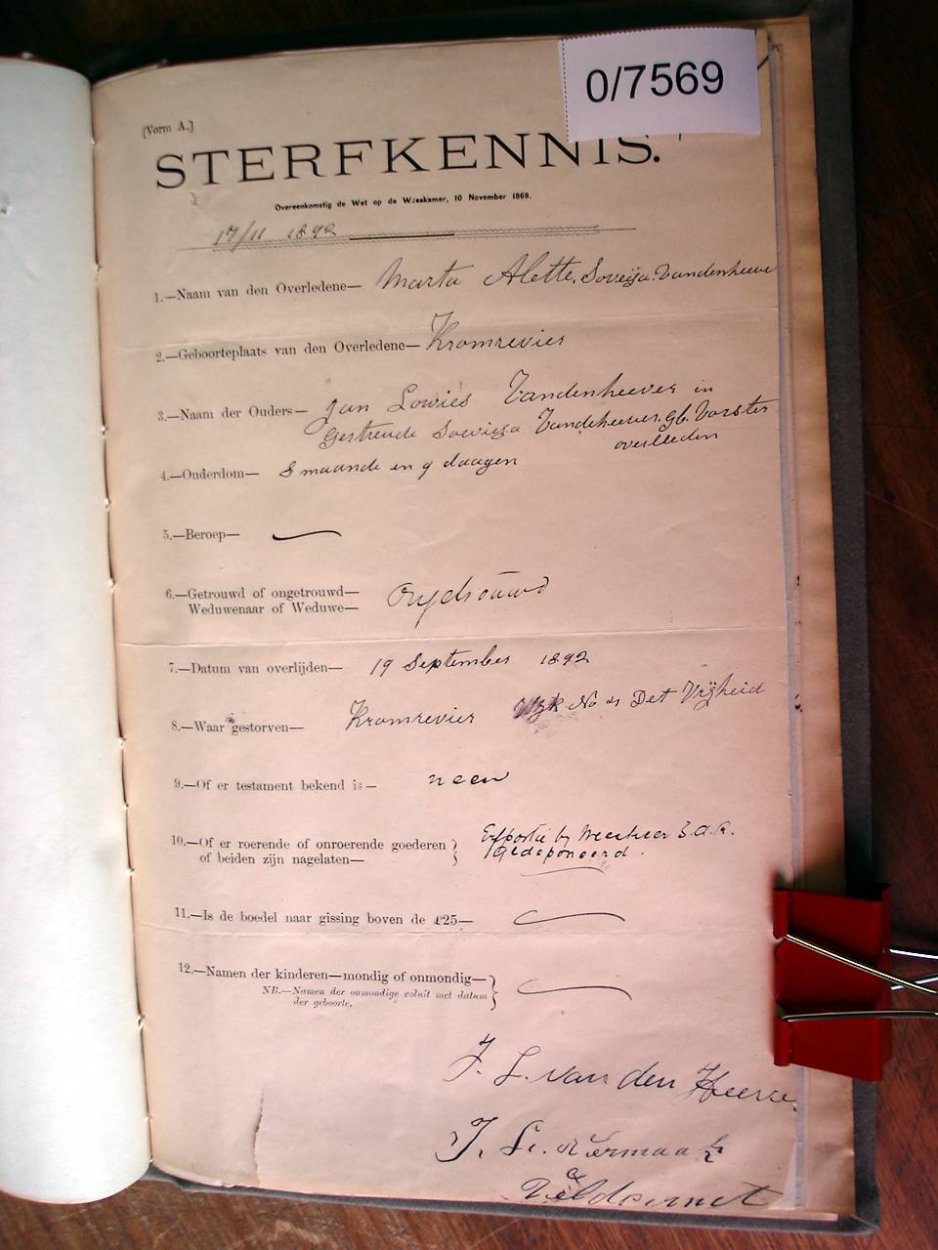 0/7569
[Vorm A.]
STERFKENNIS.
Overeenkomstig de Wet op de Weeskamer, 10 November 1869.
17/11 1892
1.—Naam van den Overledene— Marta Alette Vandenheever
2.—Geboorteplaats van den Overledene— Kromrevier
3.—Naam der Ouders— Jan Lowies Vandenheever in
Vandeheever gb. Vorster
overlleden
4.—Ouderdom— 8 maande en 9 daagen
5.—Beroep—
6.—Getrouwd of ongetrouwd—
Weduwenaar of Weduwe—
7.—Datum van overlijden— 19 September 1892
8.—Waar gestorven— Kromrevier Wyk No Det Vrijheid
9.—Of er testament bekend is— neen
10.—Of er roerende of onroerende goederen }
of beiden zijn nagelaten— } Gedeponeerd.
11.—Is de boedel naar gissing boven de £25—
12.—Namen der kinderen—mondig of onmondig—}
NB.—Namen der onmondige voluit met datum
der geboorte.
J. L. van den Heever